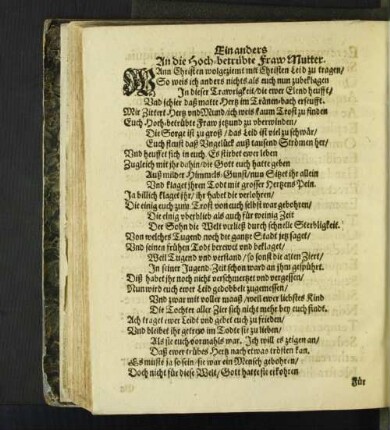 Ein anders
An die Hoch-betrübte Fraw Mutter.
WAnn Christen wolgeziemt mit Christen Leid zu tragen/
So weis ich anders nichts als euch nun zubeklagen
In dieser Trawrigkeit/die ewer Elend heufft/
Vnd schier daß matte Hertz im Tränen-bach erseufft.
Mit Zittert Hertz vnd Mund/ich weis kaum Trost zu finden
Euch Hoch-betrübte Fraw jetzund zu vberwinden/
Die Sorge ist zu groß/das Leid ist viel zu schwär/
Euch fleust daß Vnglück auß tausend Strömen her/
Vnd heuffet sich in euch. Es stirbet ewer leben
Zugleich mit ihr dahin/die Gott euch hatte geben
Auß milder Himmels-Gunst/nun Sitzet ihr allein
Vnd klaget ihren Todt mit grosser Hertzens Pein.
Ja billich klaget ihr/ihr habet die verlohren/
Die einig euch zum Trost von euch selbst war gebohren/
Die einig vberblieb als auch für weinig Zeit
Der Sohn die Welt verließ durch schnelle Sterbligkeit.
Von welches Tugend noch die gantze Stadt jetz saget/
Vnd seinen frühen Todt berewet vnd beklaget/
Weil Tugend vnd verstand/so sonst die alten Ziert/
In seiner Jugend-Zeit schon ward an ihm gespührt.
Diß habet ihr noch nicht verschmertzet vnd vergessen/
Nun wird euch ewer Leid gedobbelt zugemessen/
Vnd zwar mit voller maaß/weil ewer liebstes Kind
Die Tochter aller Zier sich nicht mehr bey euch findt.
Ach traget ewer Leidt vnd gebet euch zu frieden/
Vnd bleibet ihr getrew im Todte sie zu lieben/
Als sie euch vormahls war. Ich will es zeigen an/
Daß ewr trübes Hertz nach etwas trösten kan.
Es muste ja so sein/sie war ein Mensch gebohren/
Doch nicht für diese Welt/Gott hatte sie erkohren
Für